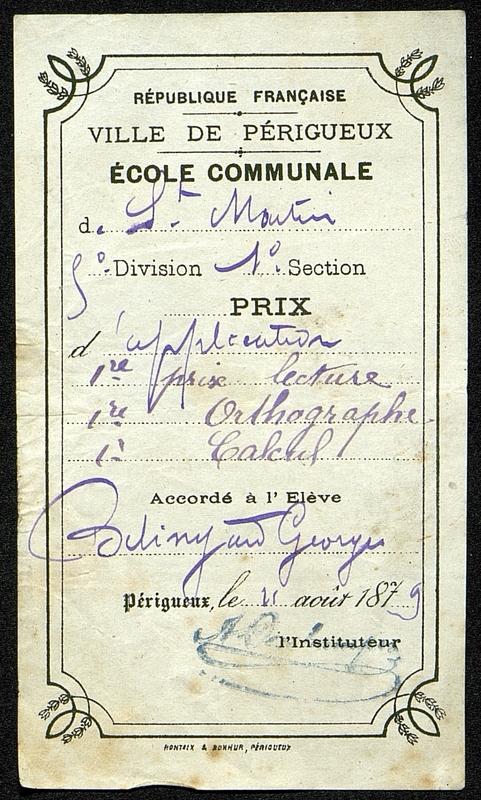 RÉPUBLIQUE FRANÇAISE
VILLE DE PÉRIGUEUX
ÉCOLE COMMUNALE
de St Martin
5e Division 1e Section
PRIX
d'application
1re prix lecture
1re Orthographe
1r Calcul
Accordé à l'Elève
Georges
Périgueux, le 11 août 1879
l'Instituteur
RONTEIX & BONHUR, PÉRIGUEUX